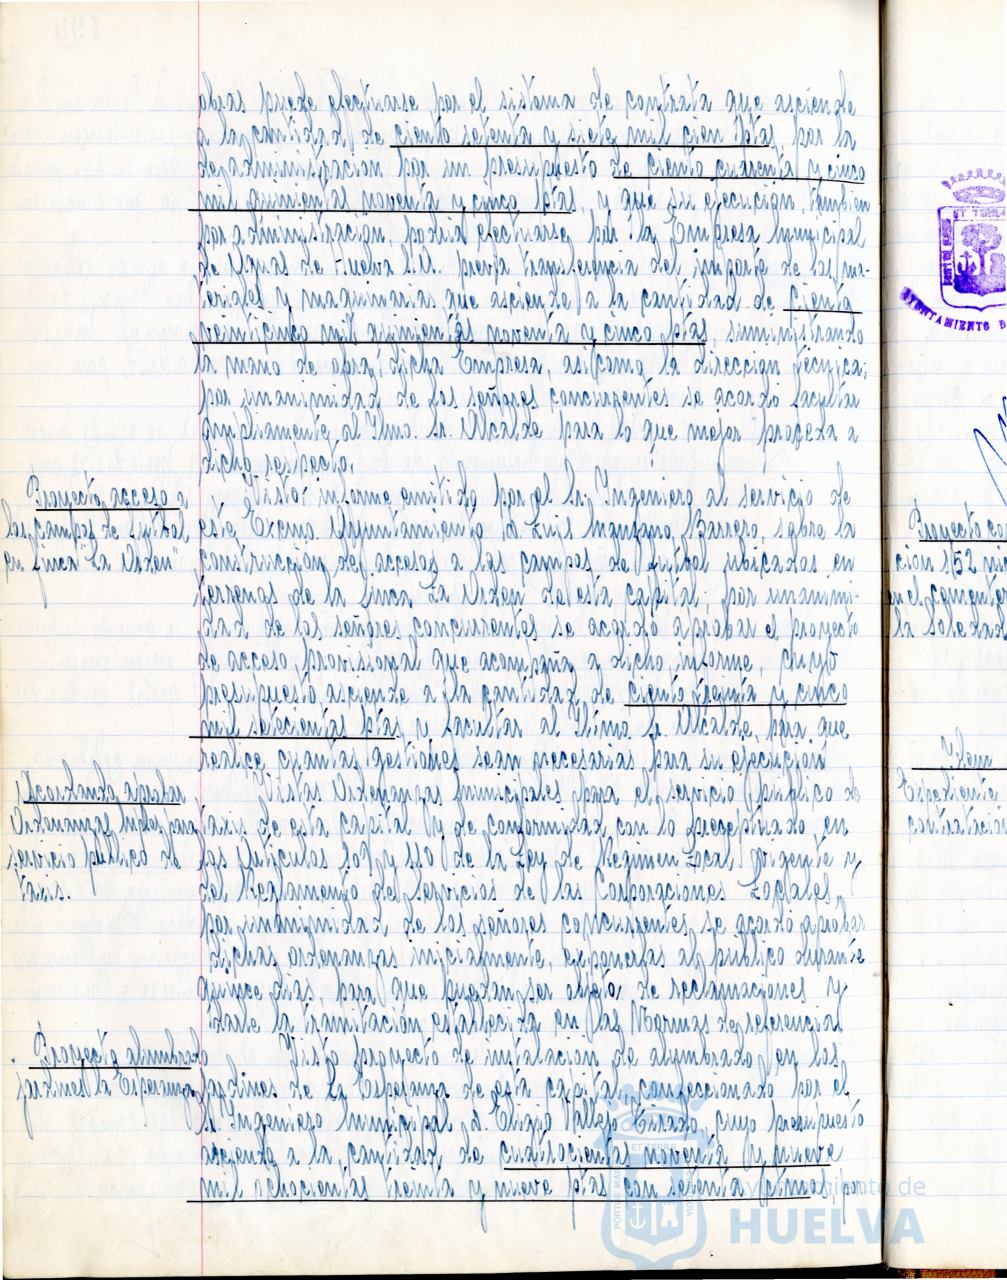 obras puede efectuarse por el sistema de contrata que asciende
a la cantidad de ciento setenta y siete mil cien ptas, por la
de administracion por un presupuesto de ciento cuarenta y cinco
mil quinientas noventa y cinco ptas, y que su ejecucion, tambien
por administracion, podria efectuarse por la Empresa Municipal
de Aguas de Huelva S.A. previa transferencia del importe de los ma-
teriales y maquinarias que asciende a la cantidad de ciento
veinticinco mil quinientas noventa y cinco ptas, suministrando
la mano de obra, dicha Empresa, asi como la direccion tecnica;
por unanimidad de los señores concurrentes se acordó facultar
ampliamente al Ilmo. Sr. Alcalde para lo que mejor proceda a
dicho respecto.
Proyecto acceso a
los campos de futbol
en finca "La Orden"
Visto informe emitido por el Sr. Ingeniero al servicio de
este Excmo. Ayuntamiento D. Luis Manzano Barrero, sobre la
construcción de accesos a los campos de futbol ubicados en
terrenos de la finca La Orden de esta capital; por unanimi-
dad de los señores concurrentes se acordó aprobar el proyecto
de acceso provisional que acompaña a dicho informe, cuyo
presupuesto asciende a la cantidad de ciento treinta y cinco
mil setecientas ptas y facultar al Iltmo Sr. Alcalde, para que
realice cuantas gestiones sean necesarias para su ejecución
Acordando aprobar
Ordenanzas Mples para
servicio publico de
taxis.
Vistas Ordenanzas Municipales para el servicio publico de
taxis de esta capital y de conformidad con lo preceptuado en
los Articulos 109 y 110 de la Ley de Regimen Local vigente y
del Reglamento de Servicios de las Corporaciones Locales,
por unanimidad de los señores concurrentes se acordó aprobar
dichas ordenanzas inicialmente, exponerlas al publico durante
quince dias para que puedan ser objeto de reclamaciones y
darle la tramitación establecida en las Normas de referencia
Proyecto alumbrado
jardines La Esperanza
Visto proyecto de instalacion de alumbrado en los
jardines de La Esperanza de esta capital, confeccionado por el
Sr. Ingeniero Municipal D. Eligio Vallejo Tirado, cuyo presupuesto
asciende a la cantidad de cuatrocientas noventa y nueve
mil ochocientas treinta y nueve ptas con setenta ctimos, por
ET TERRE
AYUNTAMIENTO
Proyecto
cion 152
en el cemente
la Soledad
Expediente
contratacion
Ayuntamiento de
HUELVA